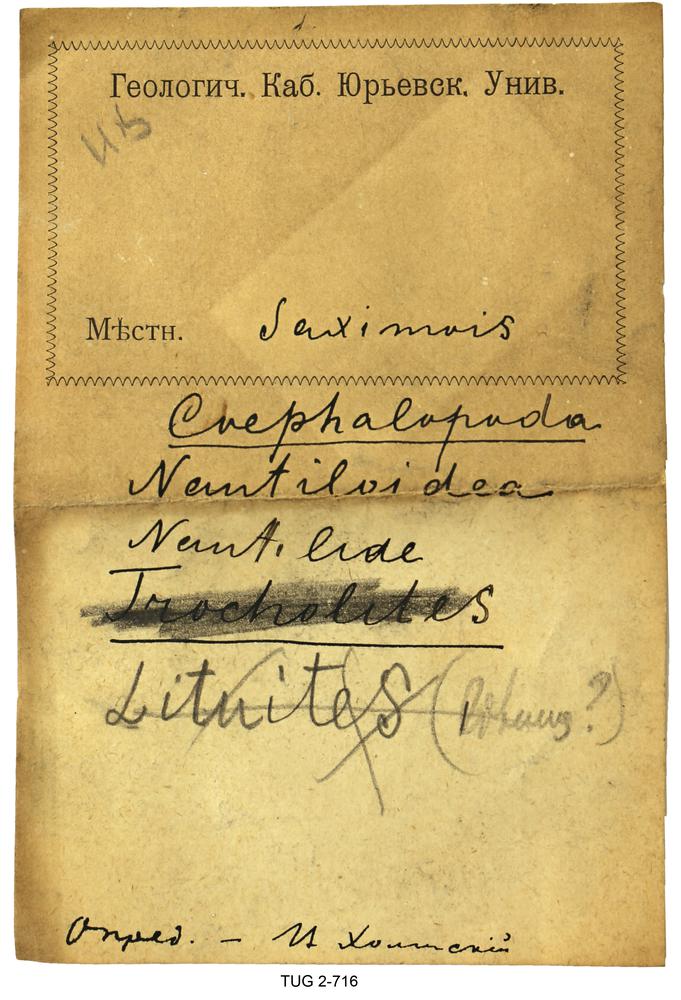 Геологич. Каб. Юрьевск. Унив.
Мѣстн. Saxi mois
Coephalopoda
Nautiloidea
Nautilidae
Trocholites
Lituites
Опред. – И
TUG 2-716